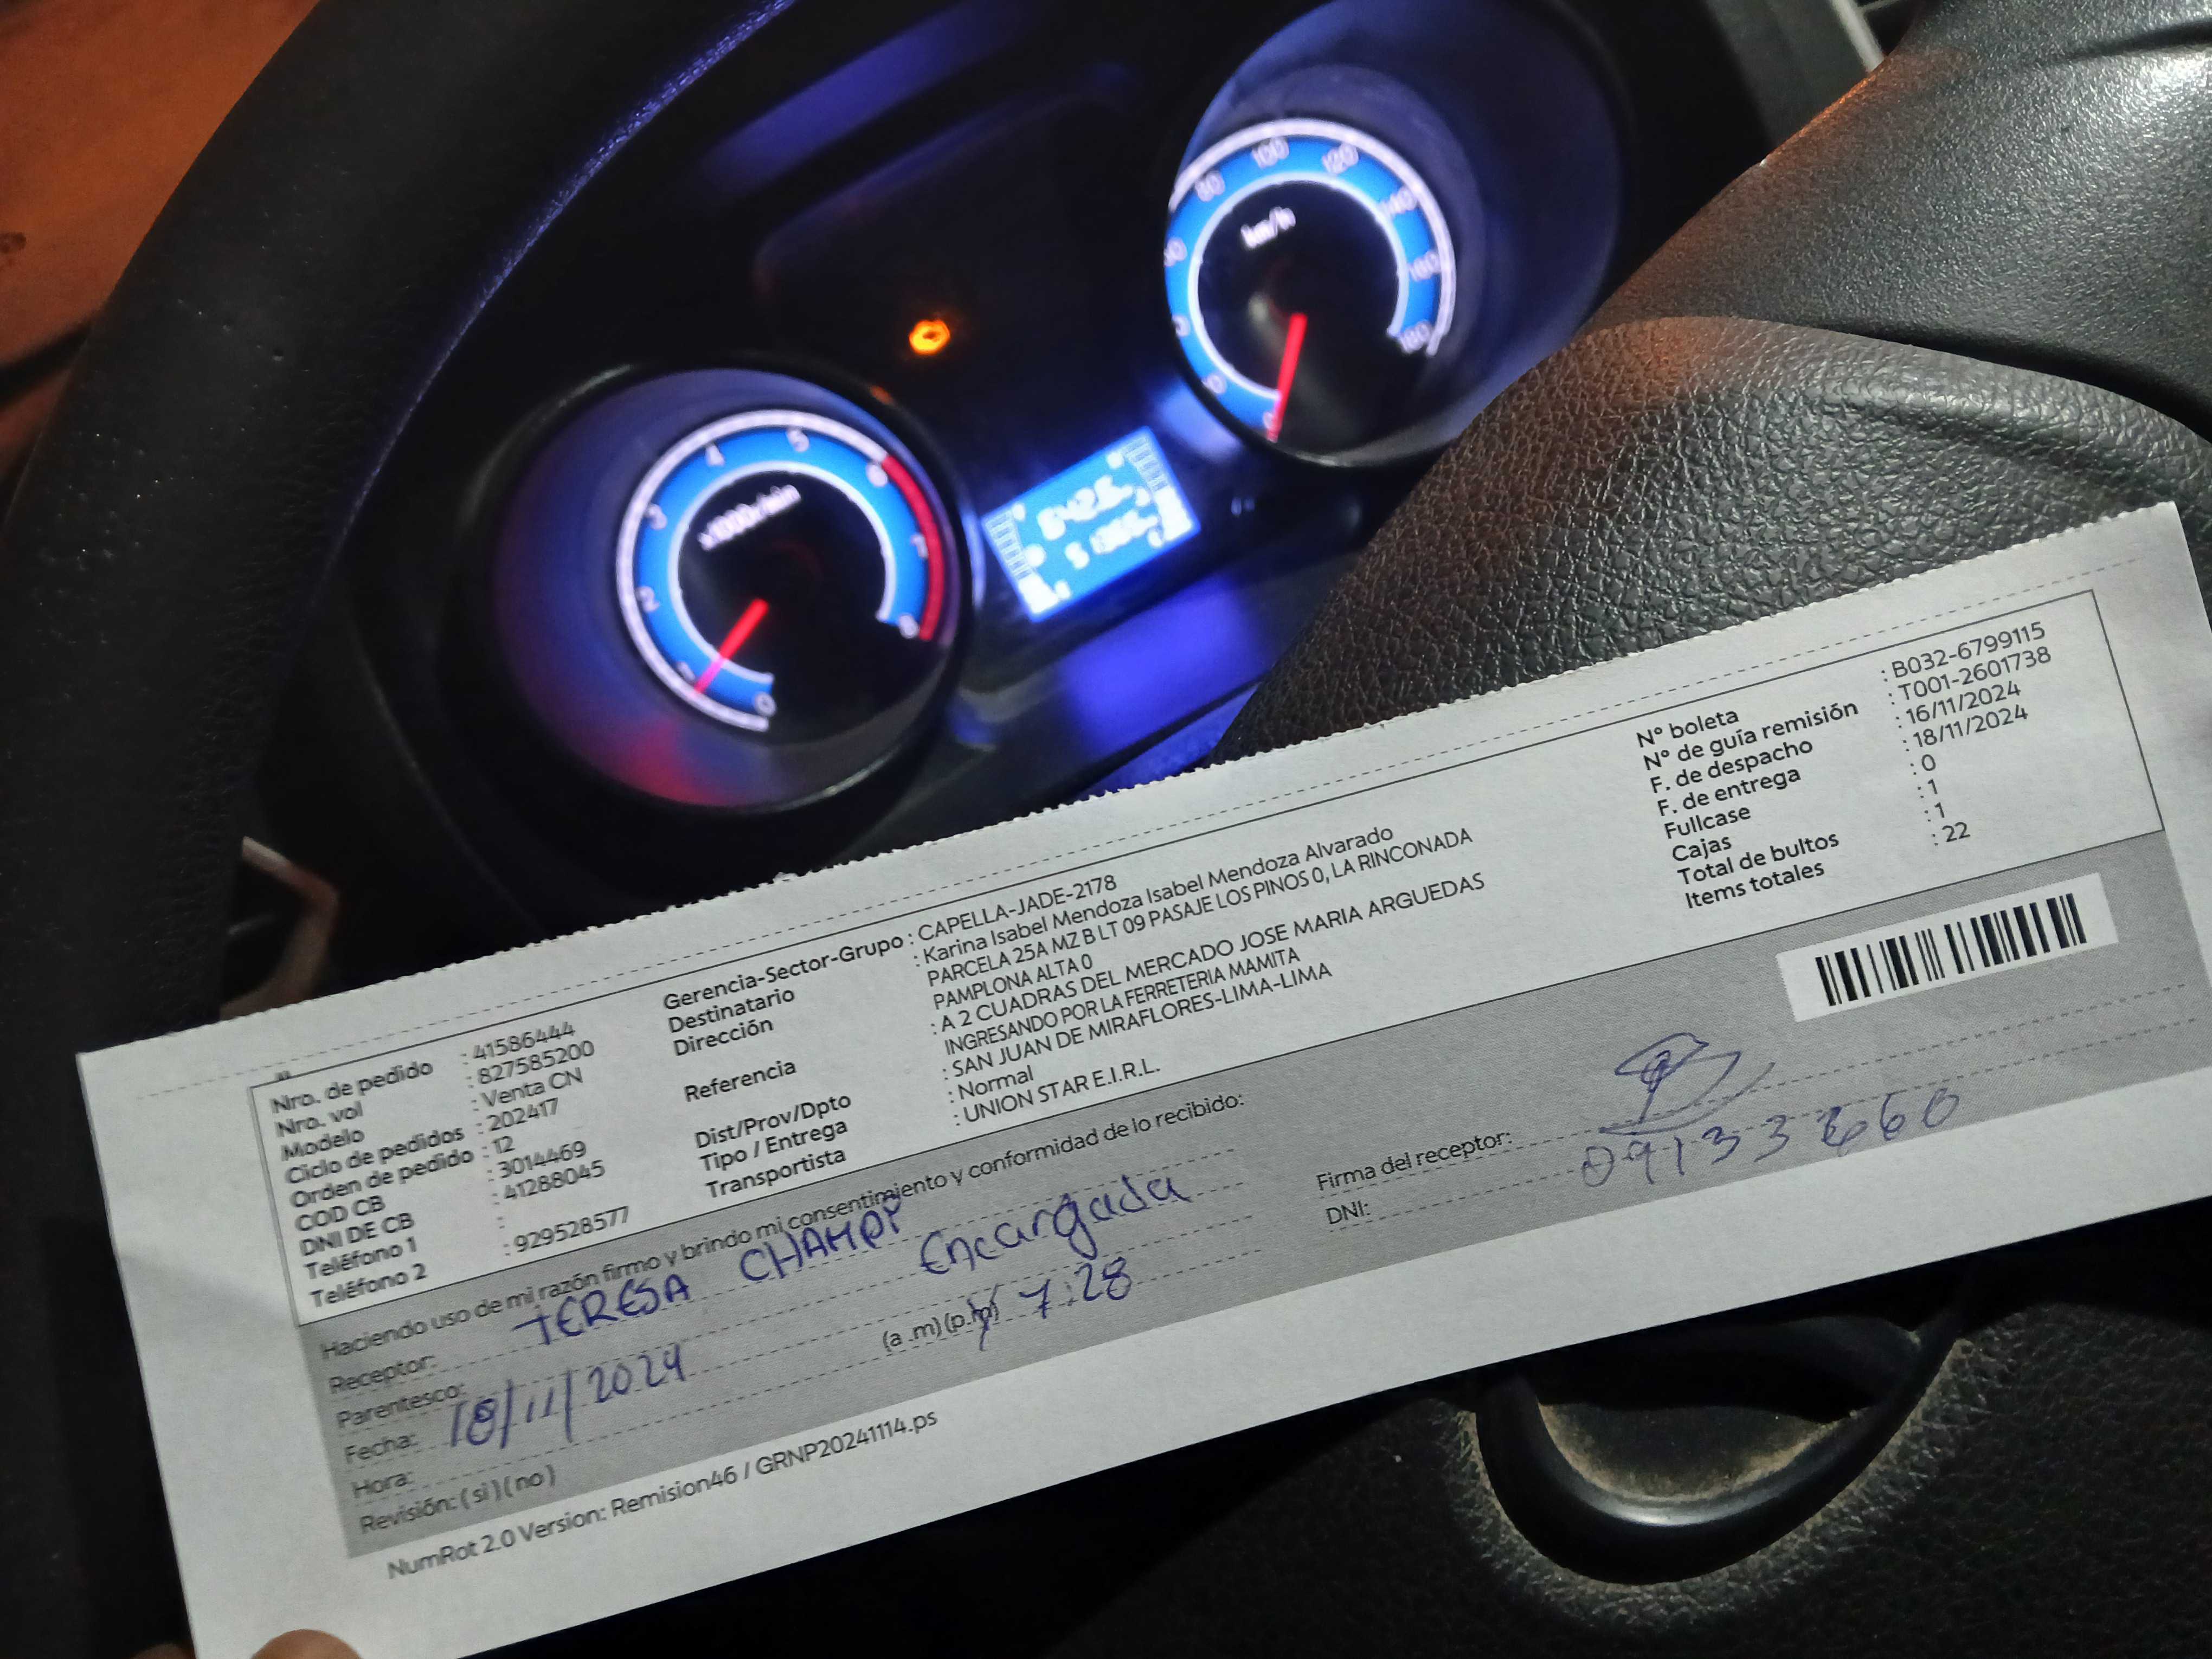 km/h
80
100
120
140
160
180
x1000r/min
0
1
2
3
4
5
6
7
8
Nro. de pedido : 41586444
Nro. vol : 827585200
Modelo : Venta CN
Ciclo de pedidos : 202417
Orden de pedido : 12
COD CB : 3014469
DNI DE CB : 41288045
Teléfono 1 :
Teléfono 2 : 929528577
Gerencia-Sector-Grupo : CAPELLA-JADE-2178
Destinatario : Karina Isabel Mendoza Isabel Mendoza Alvarado
Dirección PARCELA 25A MZ B LT 09 PASAJE LOS PINOS 0, LA RINCONADA
PAMPLONA ALTA 0
Referencia : A 2 CUADRAS DEL MERCADO JOSE MARIA ARGUEDAS
INGRESANDO POR LA FERRETERIA MAMITA
Dist/Prov/Dpto : SAN JUAN DE MIRAFLORES-LIMA-LIMA
Tipo / Entrega : Normal
Transportista : UNION STAR E.I.R.L.
N° boleta : B032-6799115
N° de guía remisión : T001-2601738
F. de despacho : 16/11/2024
F. de entrega : 18/11/2024
Fullcase : 0
Cajas : 1
Total de bultos : 1
Items totales : 22
Haciendo uso de mi razón firmo y brindo mi consentimiento y conformidad de lo recibido:
Receptor: TERESA CHAMPI
Parentesco: Encargada
Fecha: 18/11/2024
Hora: (a .m) (p.m) 7:28
Revisión: ( si ) ( no )
Firma del receptor:
DNI:
NumRot 2.0 Version: Remision46 / GRNP20241114.ps